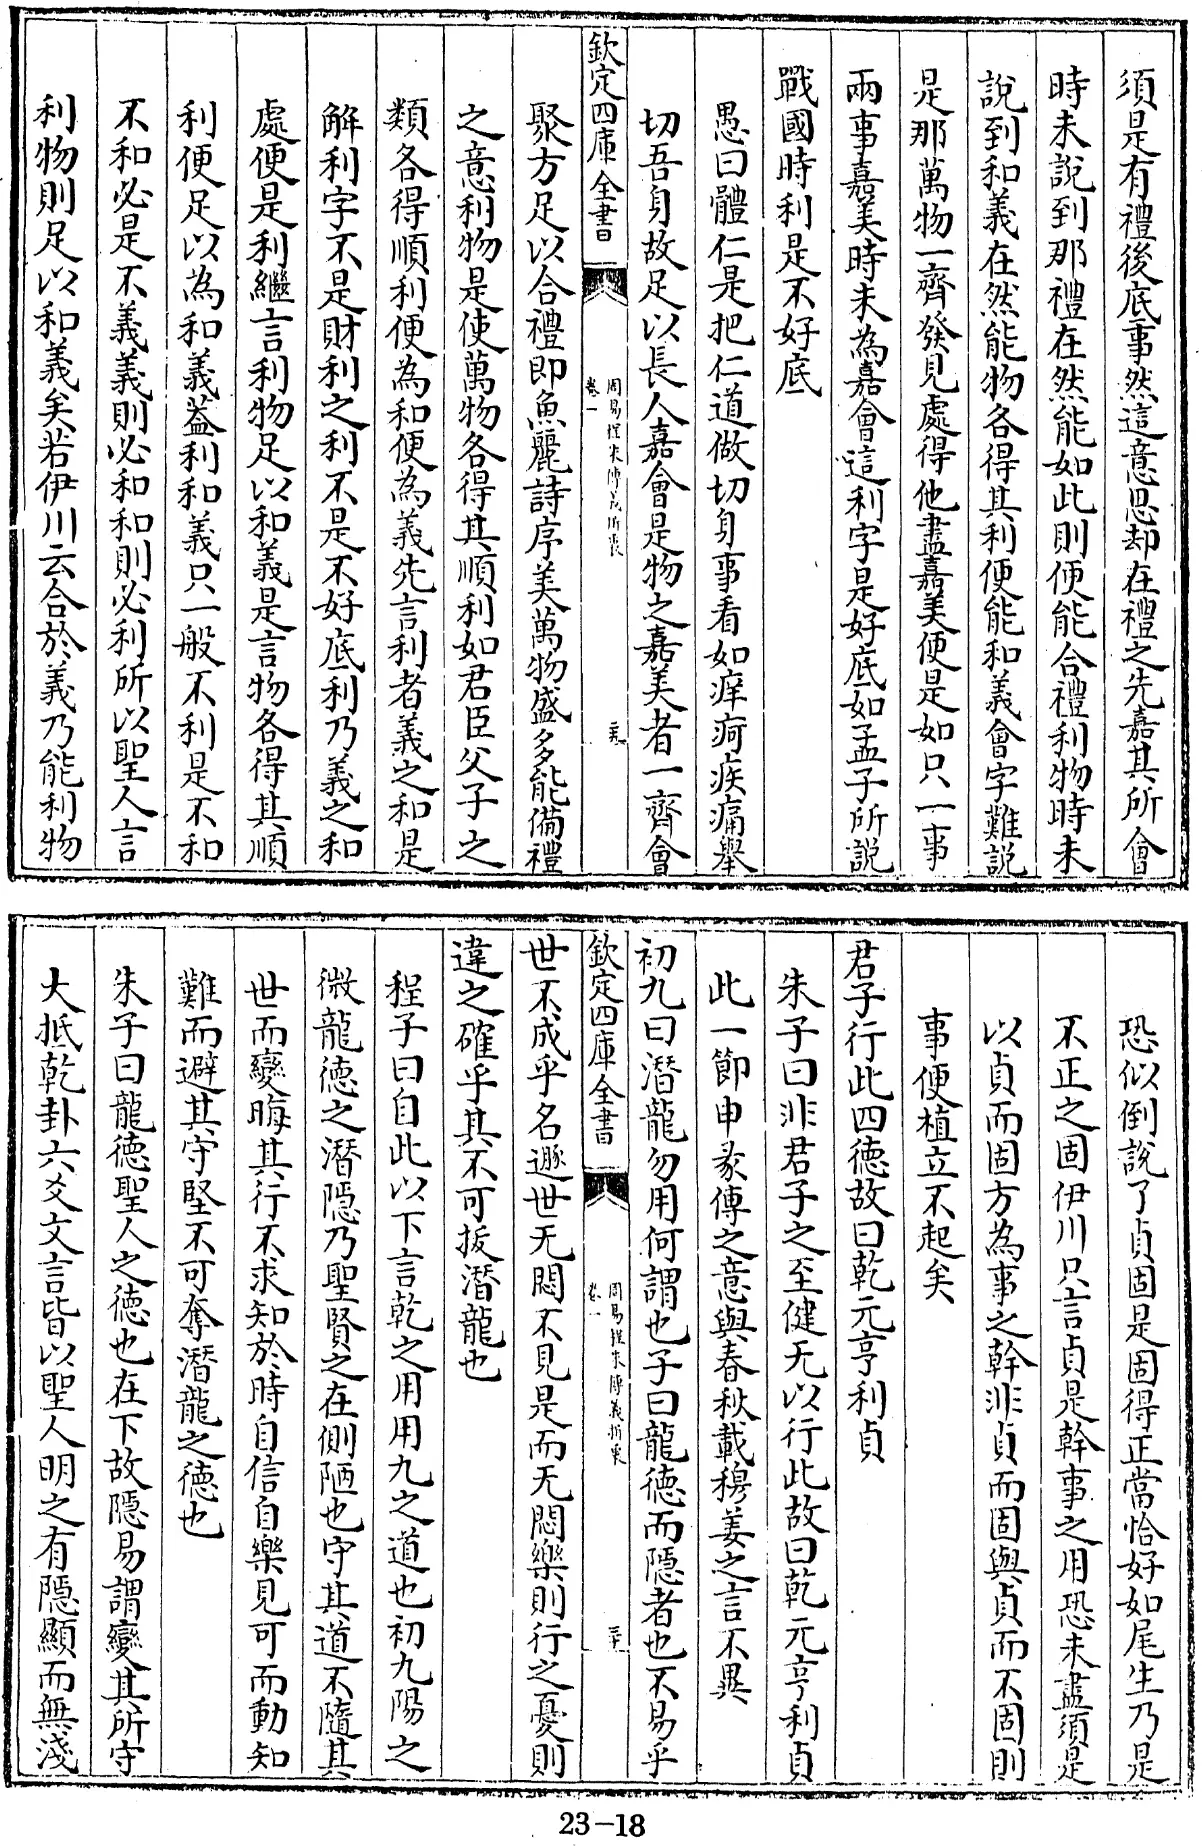 須是有禮後底事然這意思却在禮之先嘉其所會
時未說到那禮在然能如此則便能合禮利物時未
說到和義在然能物各得其利便能和義會字難說
是那萬物一齊發見處得他盡嘉美便是如只一事
兩事嘉美時未為嘉會這利字是好底如孟子所說
戰國時利是不好底
愚曰體仁是把仁道做切身事看如痒疴疾痛舉
切吾身故足以長人嘉會是物之嘉美者一齊會
欽定四庫全書
周易程朱傳義折衷
卷一
二十九
聚方足以合禮即魚麗詩序美萬物盛多能備禮
之意利物是使萬物各得其順利如君臣父子之
類各得順利便為和便為義先言利者義之和是
解利字不是財利之利不是不好底利乃義之和
處便是利繼言利物足以和義是言物各得其順
利便足以為和義葢利和義只一般不利是不和
不和必是不義義則必和和則必利所以聖人言
利物則足以和義矣若伊川云合於義乃能利物
恐似倒說了貞固是固得正當恰好如尾生乃是
不正之固伊川只言貞是幹事之用恐未盡須是
以貞而固方為事之幹非貞而固與貞而不固則
事便植立不起矣
君子行此四德故曰乾元亨利貞
朱子曰非君子之至健无以行此故曰乾元亨利貞
此一節申彖傳之意與春秋載穆姜之言不異
初九曰潛龍勿用何謂也子曰龍德而隱者也不易乎
欽定四庫全書
周易程朱傳義折衷
卷一
三十
世不成乎名遯世无悶不見是而无悶樂則行之憂則
違之確乎其不可拔潛龍也
程子曰自此以下言乾之用用九之道也初九陽之
微龍德之潛隱乃聖賢之在側陋也守其道不隨其
世而變晦其行不求知於時自信自樂見可而動知
難而避其守堅不可奪潛龍之德也
朱子曰龍德聖人之德也在下故隱易謂變其所守
大抵乾卦六爻文言皆以聖人明之有隱顯而無淺
23-18